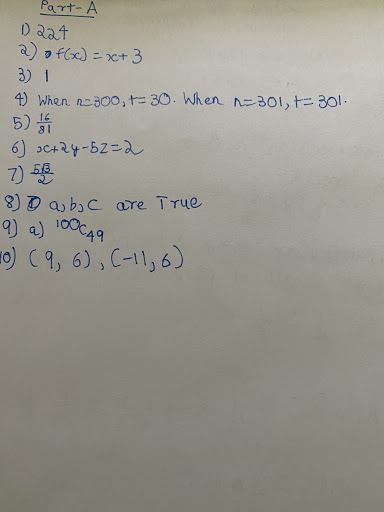 Part-A
1) 224
2) f(x) = x+3
3) 1
4) When n=300, t=30. When n=301, t=301.
5) 16/81
6) x+2y-5z=2
7) 5√3/2
8) a, b, c are True
9) a) ¹⁰⁰C₄₉
10) (9, 6), (-11, 6)